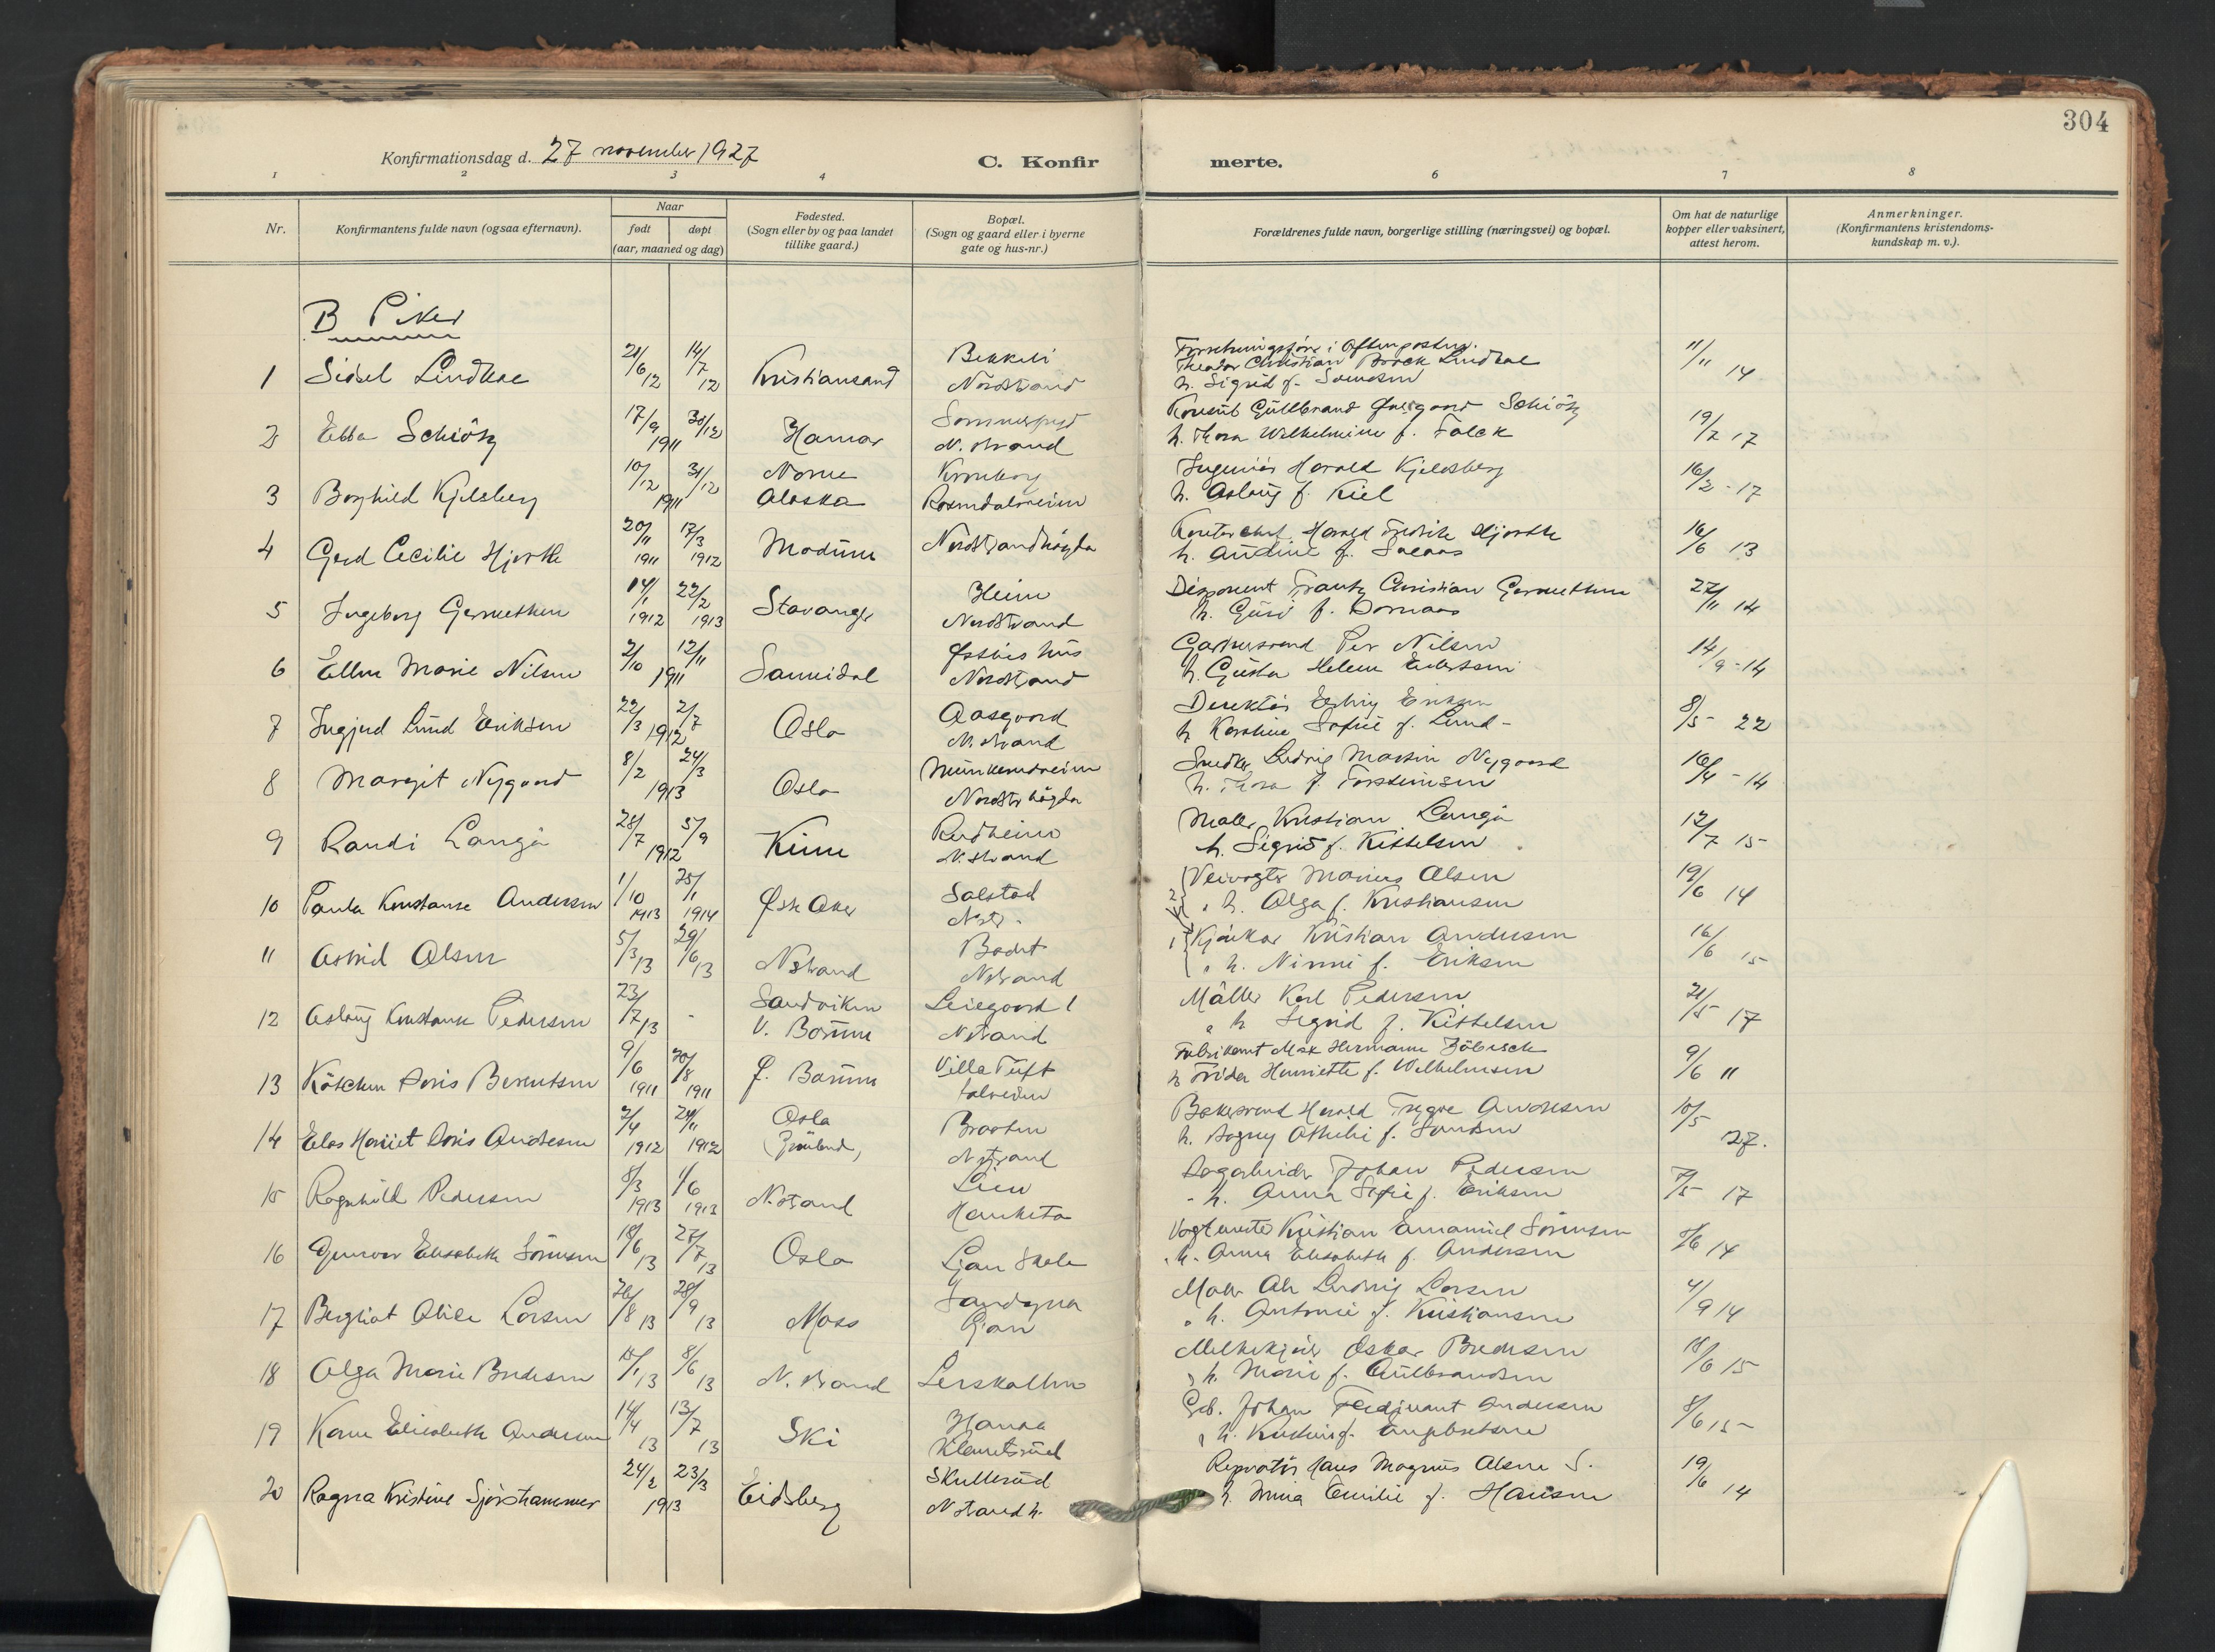 304
Konfirmationsdag d. 27 november 1927
C. Konfir merte.
1 2 3 4 6 7 8
Nr.
Konfirmantens fulde navn (ogsaa efternavn).
Naar
født døpt
(aar, maaned og dag)
Fødested.
(Sogn eller by og paa landet
tillike gaard.)
Bopæl.
(Sogn og gaard eller i byerne
gate og hus-nr.)
Forældrenes fulde navn, borgerlige stilling (næringsvei) og bopæl.
Om hat de naturlige
kopper eller vaksinert,
attest herom.
Anmerkninger.
(Konfirmantens kristendoms-
kundskap m. v.).
B Piker
1 21/6 12 14/7 12 Kristiansand Bekkeli
Nordstrand
i Aftenposten.
Theodor Christian
h. Sigrid f.
11/11 14
2 Ebba Schiötz 17/9 30/12 1911 Hamar
N. strand
Konsul Gulbrand Schiötz
h. Thora Wilhelmine f. Falck
19/7 17
3 Borghild Kjelsberg 10/12 31/12 1911 Nome
Alaska
Rosendalsveien
Ingeniör Harald Kjeldsberg
h. Aslaug f. Kiel
16/2 - 17
4 Gerd Cecilie Hjorth 20/11 1911 17/3 1912 Modum Nordstrandhögda
Kontorchef Harald Fredrik Hjorth
h. Andine f.
16/6 13
5 Ingeborg 14/1 1912 22/2 1913 Stavanger Heim
Nordstrand
Disponent Frantz Christian
h. Guri f.
27/11 14
6 Ellen Marie Nilsen 2/10 12/11 1911 Sannidal
Nordstrand
Per Nilsen
h. Gusta Helene
14/9 - 14
7 Ingjerd Lund Eriksen 22/3 2/7 1912 Oslo Aasgaard
N. strand
Direktör Eriksen
h Karoline Sofie f. Lund -
8/5 - 22
8 Margit Nygaard 8/2 24/3 1913 Oslo Munkerudveien
Nordstr högda
Snedker Ludvig Martin Nygaard
h. Thora f. Torsteinsen
16/4 - 14
9 Randi Langå 28/7 5/9 1912
N. strand
Maler Kristian Langå
h. Sigrid f. Kittelsen
12/7 15
10 Paula Konstanse Andersen 1/10 1913 25/1 1914 Østre Aker Solstad
Nstr.
Veivogter Marius Olsen
h. Olga f. Kristiansen
19/6 14
11 Astrid Olsen 5/3 13 29/6 13 Nstrand
Nstrand
Kjörekar Kristian Andersen
h. Ninni f. Eriksen
16/6 15
12 Aslaug Konstanse Pedersen 23/7 13 - Sandviken
V. Bærum
Leiegaard 1
Nstrand
Maler Karl Pedersen
h Sigrid f. Kittelsen
21/5 17
13 Doris Berentsen 9/6 1911 20/8 1911 Ø. Bærum Villa Tuft
Fabrikant Max Hermann
h Frida Henriette f. Wilhelmsen
9/6 11
14 Doris Andresen 2/4 1912 24/11 1912 Oslo
(Grønland)
Braaten
Nstrand
Bakersvend Harald Trygve Andresen
h. Dagny f.
10/5
27.
15 Ragnhild Pedersen 8/3 1913 1/6 1913 N. strand Lien
Hauketo
Johan Pedersen
h. Anna Sofie f. Eriksen
7/5 17
16 Gunvor Elisabeth Sörensen 18/6 13 27/7 13 Oslo Ljan Skole
Kristian Emanuel Sörensen
h. Anna Elisabeth f. Andersen
14
17 Bergliot Larsen 26/8 13 28/9 13 Moss
Ljan
Maler Ole Ludvig Larsen
h. Antonie f. Kristiansen
4/9 14
18 Olga Marie Bredesen 15/1 13 8/6 13 N. strand Leirskallen
Melkekjörer Oskar Bredesen
h. Marie f. Gulbrandsen
18/6 15
19 Elisabeth Andersen 14/4 13 13/7 13 Ski
Klemetsrud
Johan Ferdinant Andersen
8/6 15 -
20 Ragna Kristine Sjöstrammer 24/2 23/3 1913 Eidsberg Skullerud
Nstrand h.
Reparatör Hans Magnus Olsen S.
h. Mina Emilie f. Hansen
19/6 14